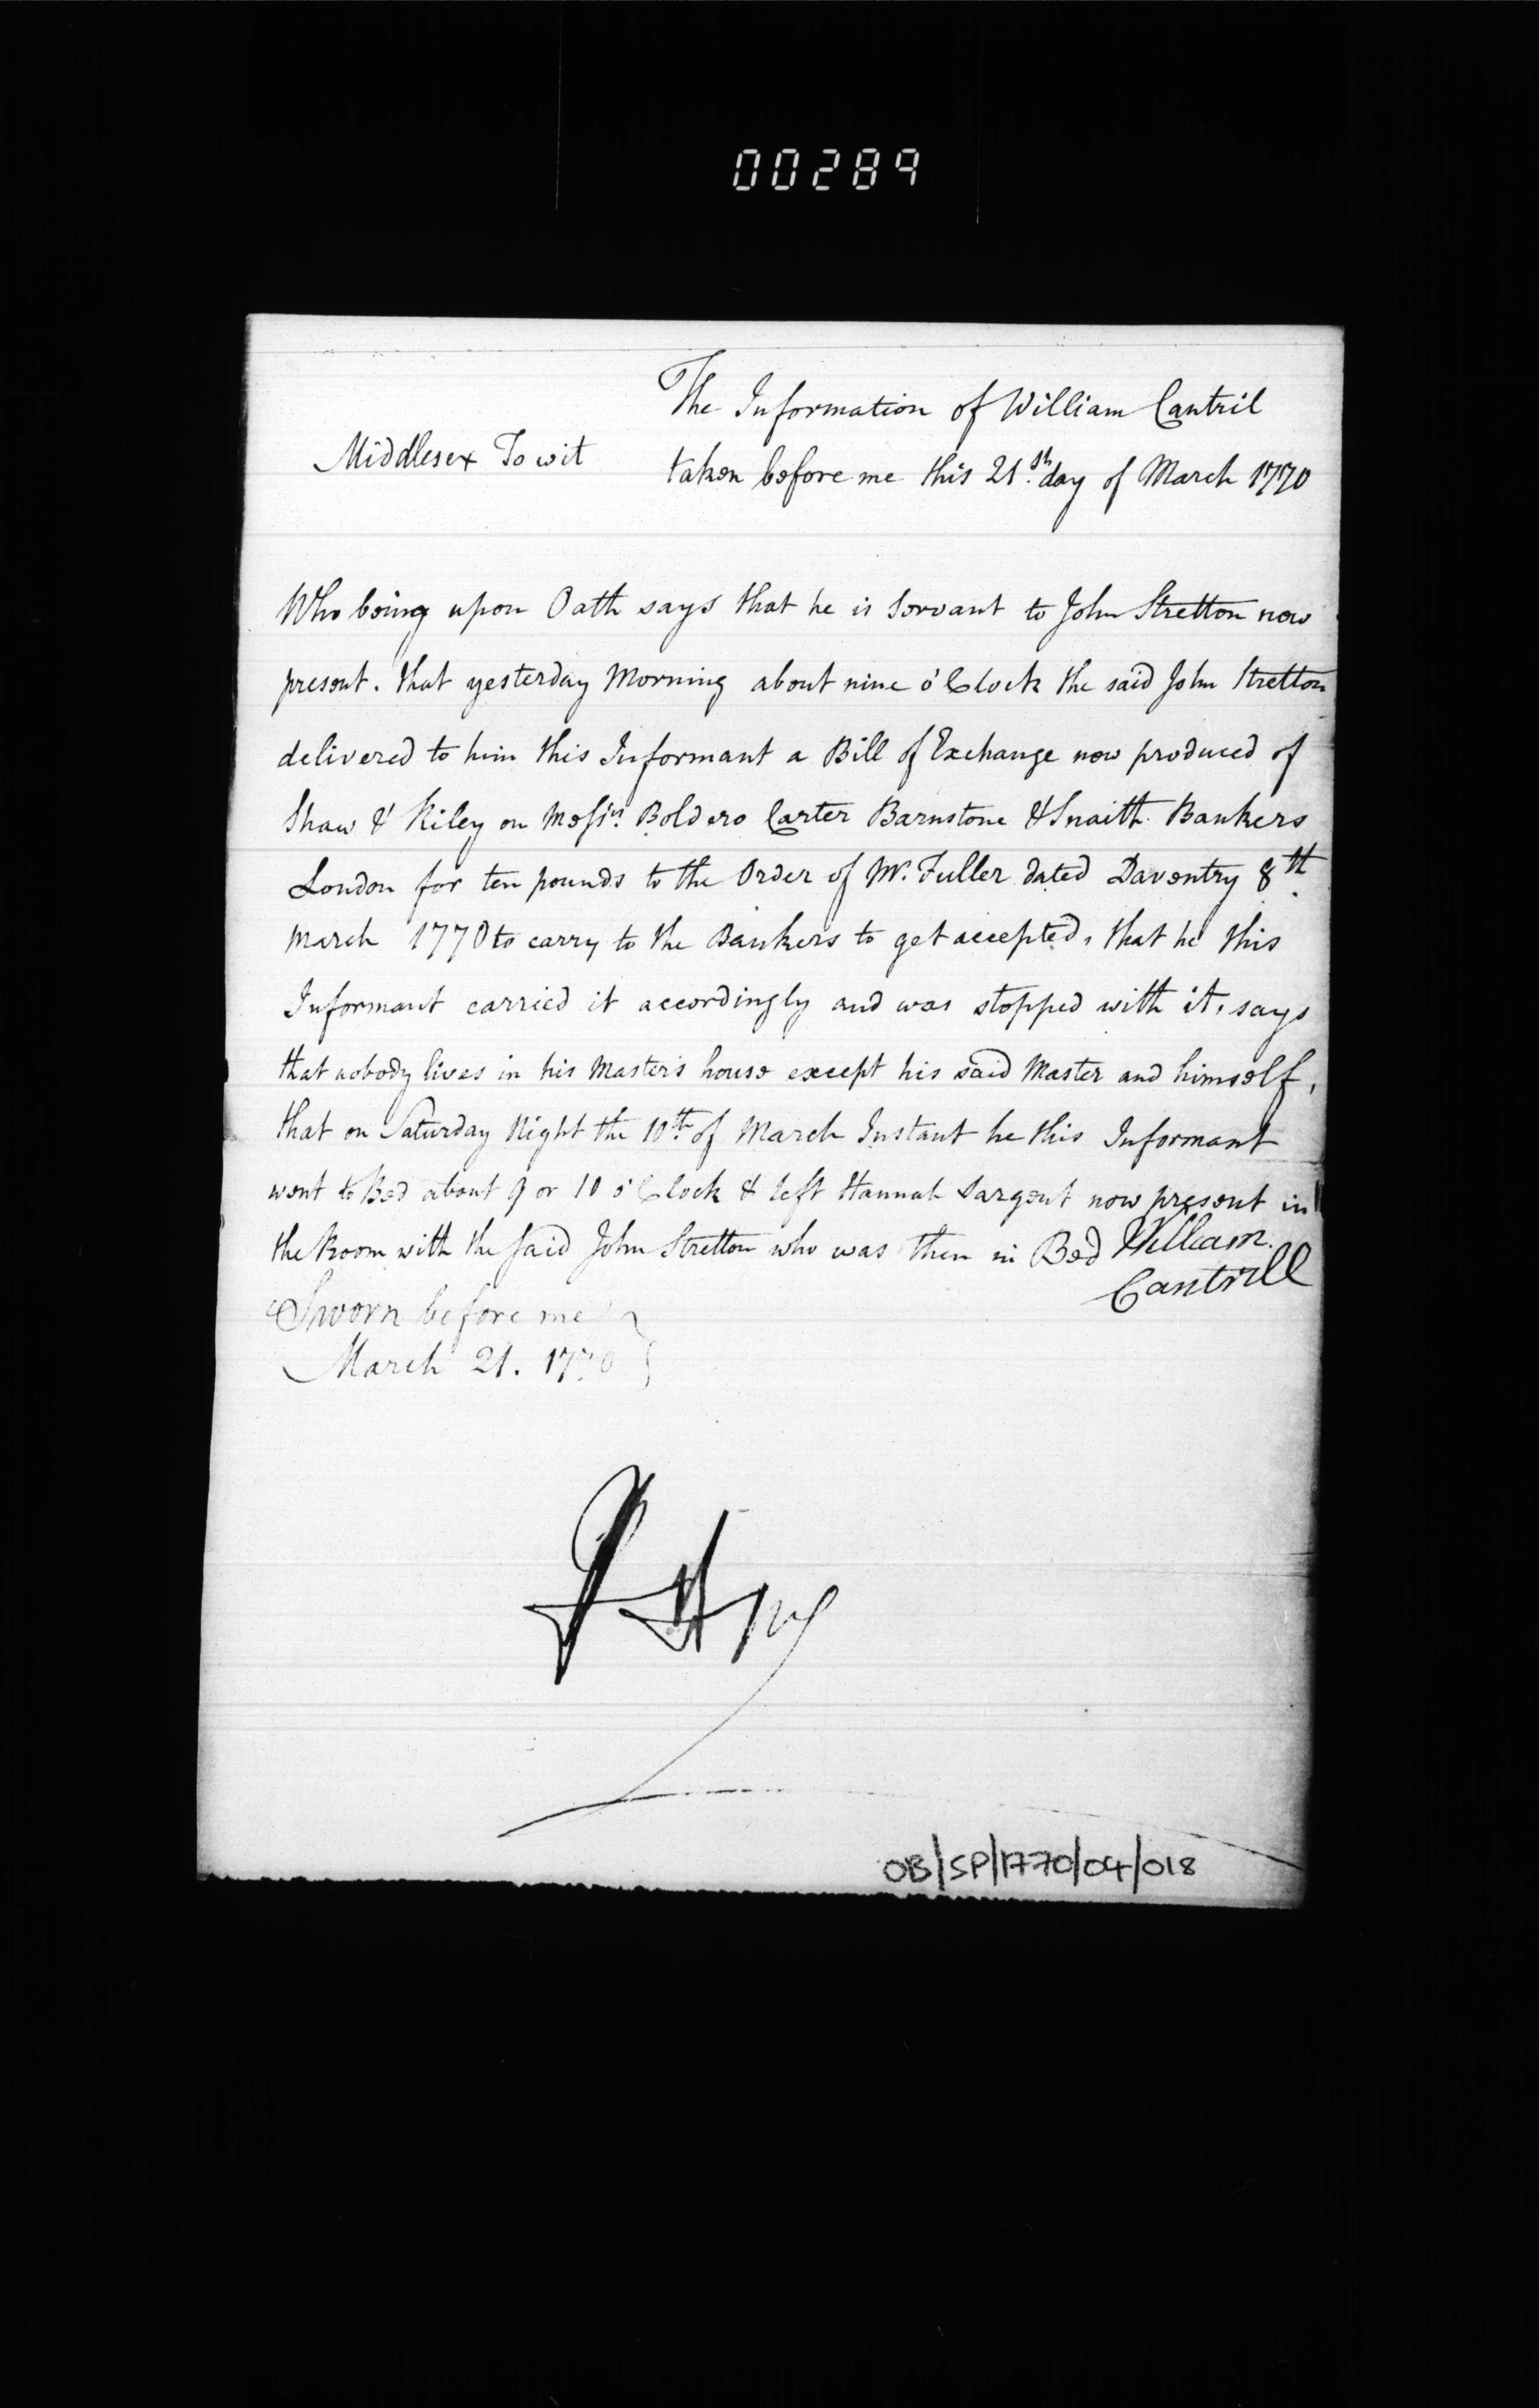 00289
The Information of William Cantril
Middlesex To wit
taken before me this 21st. day of March 1770
Who being upon Oath says that he is Servant to John Stretton now
present. that yesterday Morning about nine o'Clock the said John Stretton
delivered to him this Informant a Bill of Exchange now produced of
Shaw & Kiley on Messrs. Boldero Carter Barnstone & Snaith Bankers
London for ten pounds to the Order of Mr. Fuller dated Daventry 8th.
March 1770 to carry to the Bankers to get accepted, that he this
Informant carried it accordingly and was stopped with it, says
that nobody lives in his Master's house except his said Master and himself,
that on Saturday Night the 10th. of March Instant he this Informant
went to Bed about 9 or 10 o'Clock & left Hannah Sargent now present in
the Room with the said John Stretton who was then in Bed William
Cantrill
Sworn before me
March 21. 1770
OB/SP/1770/04/018